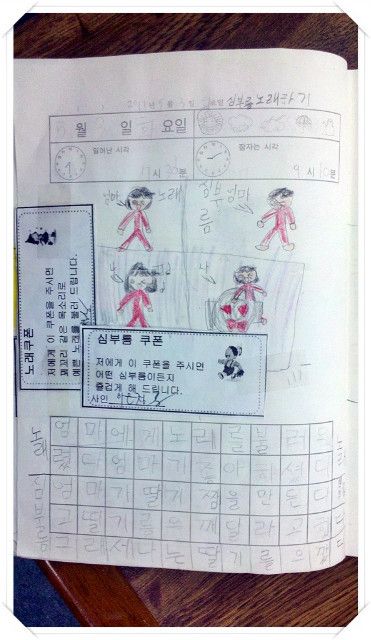 2011년 5월 5일 심부름 노래하기
월 일 요일
일어난 시각 시 분
잠자는 시각 9시 분
엄마 노래
심부름 엄마
나
나
노래쿠폰
저에게 이 쿠폰을 주시면
꾀꼬리 같은 목소리로
예쁜 노래를 불러 드립니다.
심부름 쿠폰
저에게 이 쿠폰을 주시면
어떤 심부름이든지
즐겁게 해 드립니다.
사인
엄마에게 노래를 불러드
렸다 엄마가 좋아하셨다
엄마가 딸기쨈을 만든다
고 딸기를 으깨달라고 했다
그래서 나는 딸기를 으깼